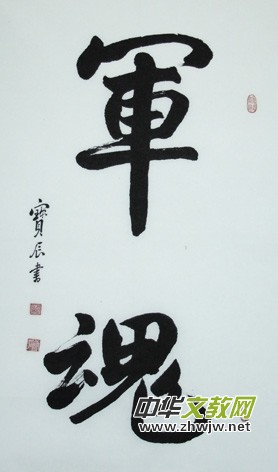 軍魂
寶辰書
中华文教网
www.zhwjw.net